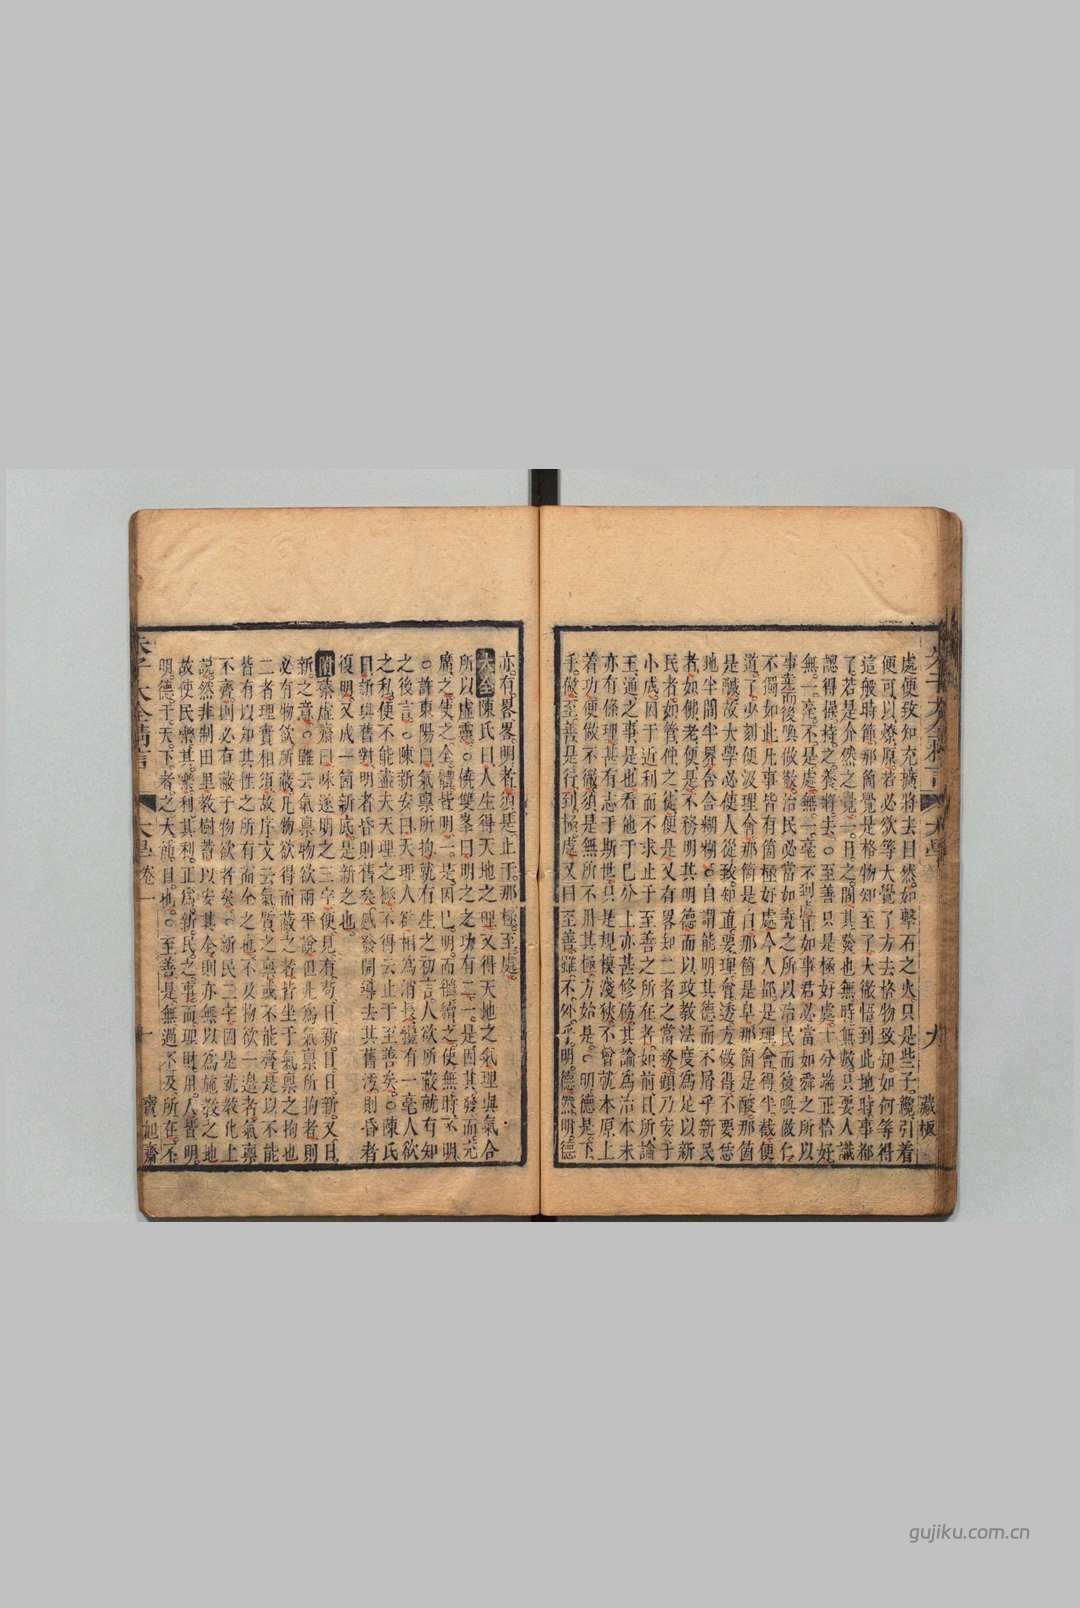 處便致知充擴將去曰然如擊石之火只是些子纔引着
便可以燎原若必欲等大覺了方去格物致知如何等得
這般時節那箇覺是格物知至了大徹悟到此地時事都
了若是介然之覺一日之間其發也無時無數只要人識
認得操持充養將去○至善只是極好處十分端正恰好
無一毫不是處無一毫不到處且如事君必當如舜之所以
事堯而後喚做敬治民必當如堯之所以治民而後喚做仁
不獨如此凡事皆有箇極好處今人都是理會得半截便
道了少刻便沒理會那箇是白那箇是皁那箇是酸那箇
是鹹故大學必使人從致知直要理會透方做得不要恁
地半間半界含含糊糊○自謂能明其德而不屑乎新民
者如佛老便是不務明其明德而以政教法度爲足以新
民者如管仲之徒便是又有畧知二者之當務顧乃安于
小成因于近利而不求止于至善之所在者如前日所論
王通之事是也看他于己分上亦甚修飭其論爲治本末
亦有條理甚有志于斯世只是規模淺狹不曾就本原上
着功便做不徹須是無所不用其極方始是○明德是下
手做至善是行到極處又曰至善雖不外乎明德然明德
亦有畧畧明者須是止于那極至處
大全陳氏曰人生得天地之理又得天地之氣理與氣合
所以虛靈○饒雙峯曰明之之功有二一是因其發而充
廣之使之全體皆明一是因已明而繼續之使無時不明
○許東陽曰氣稟所拘就有生之初言人欲所蔽就有知
之後言○陳新安曰天理人欲相爲消長纔有一毫人欲
之私便不能盡夫天理之極不得云止于至善矣○陳氏
曰新與舊對明者昏則舊矣感發開導去其舊汚則昏者
復明又成一箇新底是新之也
附蔡虛齋曰味遂明之三字便見有苟日新日日新又日
新之意○雖云氣稟物欲兩平說但此爲氣稟所拘者則
必有物欲所蔽凡物欲得而蔽之者皆坐于氣稟之拘也
二者理實相須故序文云氣質之稟或不能齊是以不能
皆有以知其性之所有而全之也不及物欲一邊者氣稟
不齊則必有蔽于物欲者矣○新民二字因是就教化上
說然非制田里教樹畜以安其全則亦無以爲施教之地
故使民樂其樂利其利正爲新民之事而理財用人皆明
明德于天下者之大節目也○至善是無過不及所在不
朱子大全精言 大學卷一 十 寶旭齋
九 藏板
gujiku.com.cn